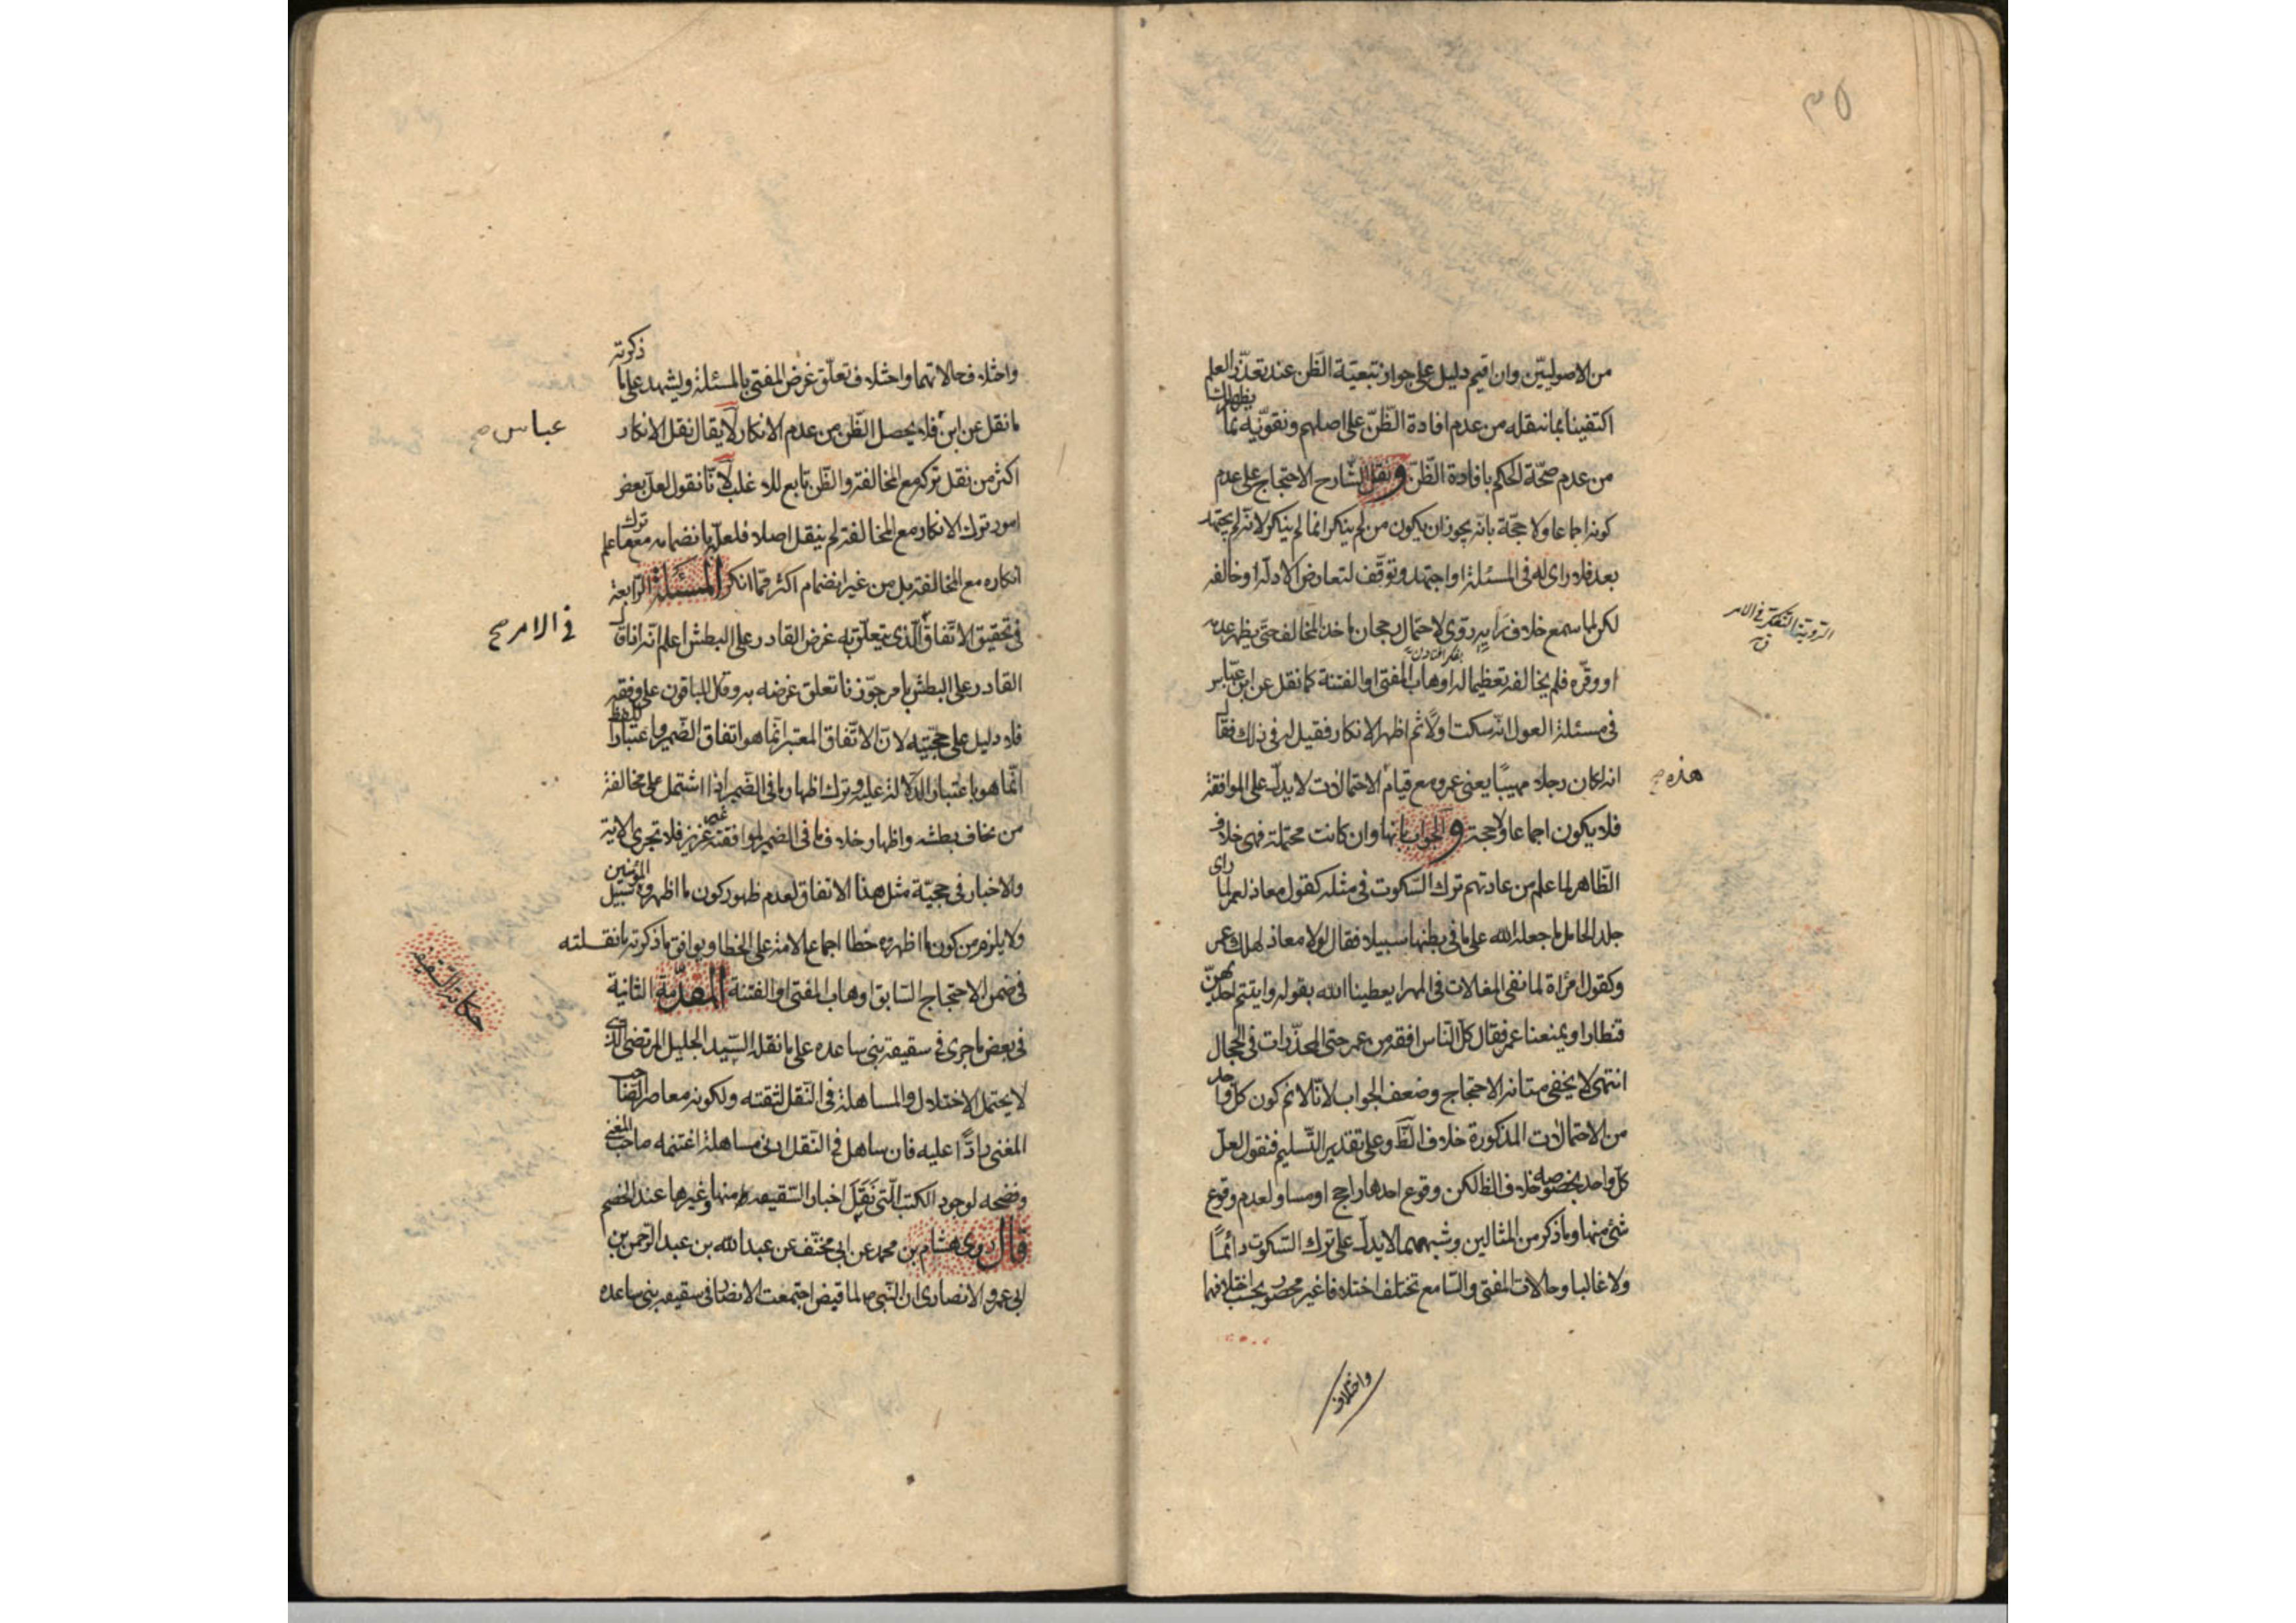 ٣٥
من الاصوليّين وان اقيم دليل على جواز تبعيّة الظّن عند تعذّر العلم
اكتفينا بما ننقله من عدم افادة الظّنّ على اصلهم ونقوّيه بما يظهر لنا
من عدم صحّة الحكم بافادة الظّنّ ونقل الشّارح الاحتجاج على عدم
كونه اجماعا ولا حجّة بانّه يجوز ان يكون من لم ينكر انما لم ينكر لانّه لم يجتهد
بعد فلا راى له فى المسئلة او اجتهد وتوقّف لتعارض الادلّة او خالفه
لكن لما سمع خلاف رايه روّى لاحتمال رجحان ماخذ المخالف حتى يظهر عدمه
الترويّة التفكّر فى الامر
ق
او وقّره فلم يخالفه تعظيما له او هاب المفتى او الفتنة كما نقل عن ابن عبّاس
فى مسئلة العول انّه سكت اولًا ثم اظهر الانكار فقيل له فى ذلك فقال
انه كان رجلا مهيبًا يعنى عمر ومع قيام الاحتمالات لا يدلّ على الموافقة
هذه صح
فلا يكون اجماعا ولا حجة والجواب بانها وان كانت محتملة فهى خلاف
الظّاهر لما علم من عادتهم ترك السّكوت فى مثله كقول معاذ لعمر لما راى
جلد الحامل ما جعل الله على ما فى بطنها سبيلا فقال لولا معاذ لهلك عمر
وكقول امراة لما نفى المغلات فى المهر ايعطينا الله بقوله وايتتم احديهنّ
قنطارا ويمنعنا عمر فقال كلّ النّاس افقه من عمر حتى المخدّرات فى الحجال
انتهى لا يخفى متانه الاحتجاج وضعف الجواب لانّا لا نم كون كل واحد
من الاحتمالات المذكورة خلاف الظّ وعلى تقدير التّسليم فنقول لعلّ
كلّ واحد بخصوصه خلاف الظ لكن وقوع احدها راجح او مساو لعدم وقوع
شئ منها وما ذكر من المثالين وشبههما لا يدلّ على ترك السّكوت دائمًا
ولا غالبا وحالات المفتى والسّامع تختلف اختلافا غير محصور بحسب اختلافهما
واختلاف
واختلاف حالاتهما واختلاف تعلّق غرض المفتى بالمسئلة ويشهد على ما ذكرته
ما نقل عن ابن فلا يحصل الظّن من عدم الانكار لا يقال نقل الانكار
عباس صح
اكثر من نقل تركه مع المخالفة والظّن تابع للاغلب لانّا نقول لعلّ بعض
امور ترك الانكار مع المخالفة لم ينقل اصلا فلعلّ بانضمامه مع ما علم ترك
انكاره مع المخالفة بل من غير انضمام اكثر ممّا انكر المسئلة الرّابعة
فى تحقيق الاتّفاق الّذى يتعلّق به غرض القادر على البطش اعلم انّه اذا قال
فى الامر صح
القادر على البطش بامر جوّزنا تعلق غرضه به وقال الباقون على وفقه
فلا دليل على حجّيّته لانّ الاتّفاق المعتبر انّما هو اتفاق الضّمير واعتبار اللفظ
انّما هو باعتبار الدّلالة عليه وترك اظهار ما فى الضّمير اذا اشتمل على مخالفة
من يخاف بطشه واظهار خلاف ما فى الضمير لموافقته غير عزيز فلا تجرى الاية
والاخبار فى حجيّة مثل هذا الاتفاق لعدم ظهور كون ما اظهروه سبيل المؤمنين
ولا يلزم من كون ما اظهروه خطا اجماع الامة على الخطا ويوافق ما ذكرته ما نقلته
فى ضمن الاحتجاج السّابق وهاب المفتى او الفتنة المقدّمة الثانية
حكاية السّقيفه
فى بعض ما جرى فى سقيفة بنى ساعده على ما نقله السّيد الجليل المرتضى الذى
لا يحتمل الاختلال والمساهلة فى النّقل لثقته ولكونه معاصر القضا
المغنى رادًّا عليه فان ساهل فى النّقل ادنى مساهلة اغتنمه صاحب المغنى
وفضحه لوجود الكتب الّتى نَقَلَ اخبار السّقيفه منها وغيرها عند الخصم
قال روى هشام بن محمد عن ابى مخنف عن عبدالله بن عبدالرّحمن بن
ابى عمرو الانصارى ان النّبى ص لما قبض اجتمعت الانصار فى سقيفه بنى ساعده